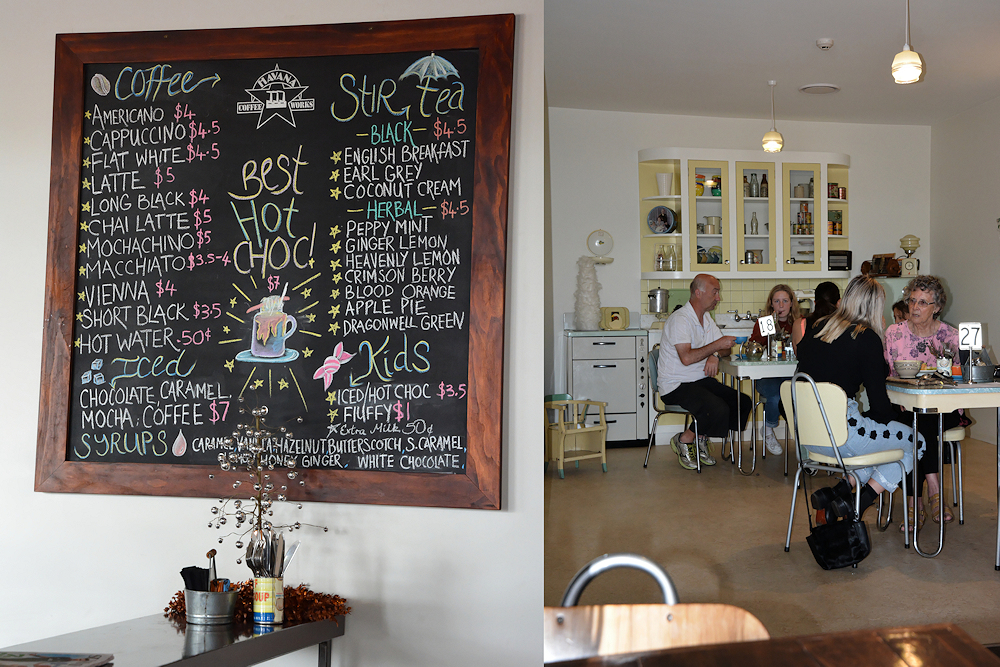 Coffee
AMERICANO $4
CAPPUCCINO $4.5
FLAT WHITE $4.5
LATTE $5
LONG BLACK $4
CHAI LATTE $5
MOCHACHINO $5
MACCHIATO $3.5-4
VIENNA $4
SHORT BLACK $3.5
HOT WATER .50¢
Iced
CHOCOLATE, CARAMEL,
MOCHA, COFFEE $7
HAVANA
COFFEE WORKS
BEST
HOT
CHOC!
$7
StIR, tea
-BLACK- $4.5
ENGLISH BREAKFAST
EARL GREY
COCONUT CREAM
-HERBAL- $4.5
PEPPY MINT
GINGER LEMON
HEAVENLY LEMON
CRIMSON BERRY
BLOOD ORANGE
APPLE PIE
DRAGONWELL GREEN
Kids
ICED/HOT CHOC $3.5
FLUFFY $1
Extra Milk .50¢
SYRUPS
CARAMEL, VANILLA, HAZELNUT, BUTTERSCOTCH, S.CARAMEL,
HONEY, GINGER, WHITE CHOCOLATE.
18
27